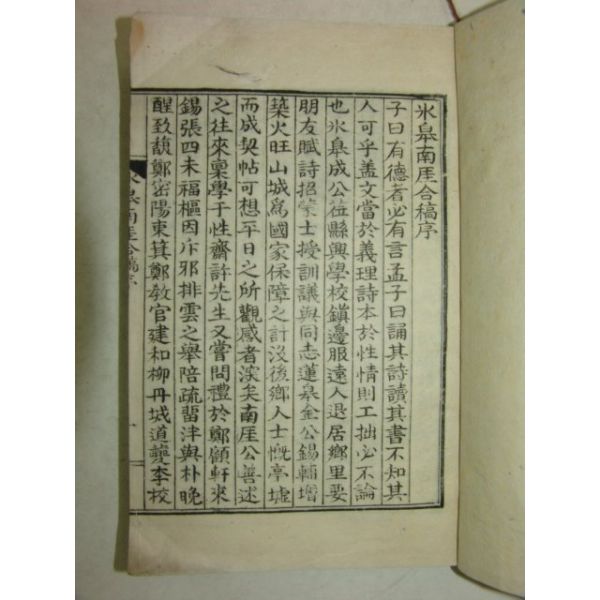 氷皐南厓合稿序
子曰有德者必有言孟子曰誦其詩讀其書不知其
人可乎盖文當於義理詩本於性情則工拙必不論
也氷皐成公莅縣興學校鎭邊服遠人退居鄕里要
朋友賦詩招蒙士授訓議與同志蓮皐金公錫輔增
築火旺山城爲國家保障之計沒後鄕人士慨亭墟
而成契帖可想平日之所觀感者深矣南厓公善述
之往來稟學于性齋許先生又嘗問禮於鄭顧軒來
錫張四未福樞因斥邪排雲之舉陪疏習泮與朴晩
醒致馥鄭密陽東箕鄭敎官建和柳丹城道夔李校
氷皐南厓合稿序
一